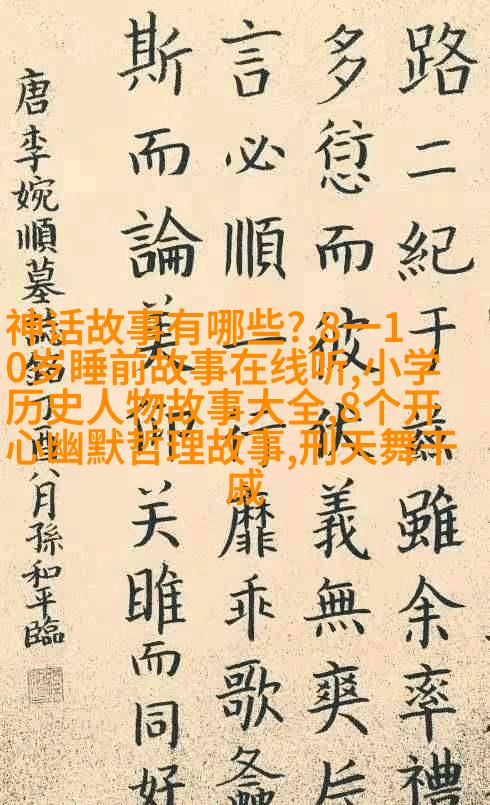 神话故事有哪些?,8一1
0岁睡前故事在线听,小学
历史人物故事大全,8个开
心幽默哲理故事,刑天舞干
戚
路二紀于茲雖余率禮
多愆而彼義無爽
言必順行靡乖歌螽
斯而論美关雎而同好
唐李婉順墓誌銘丁酉八月孫和平臨